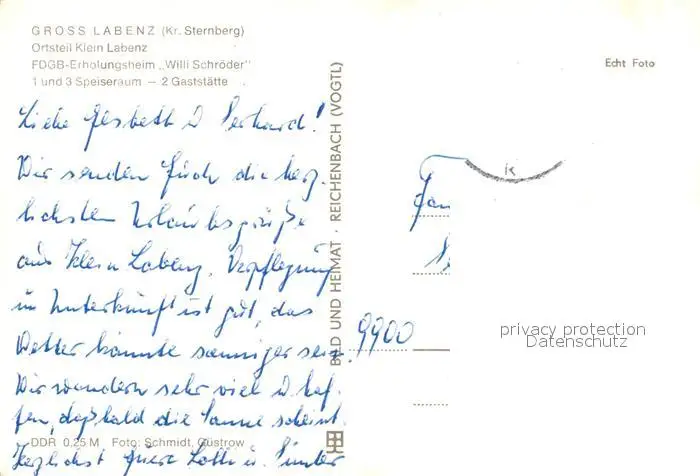 GROSS LABENZ (Kr. Sternberg)
Ortsteil Klein Labenz
FDGB-Erholungsheim „Willi Schröder"
1 und 3 Speiseraum — 2 Gaststätte
Echt Foto
Liebe
Wir senden Euch die herz-
lichsten Urlaubsgrüße
aus Klein Labenz. Verpflegung
u. Unterkunft ist gut, das
Wetter könnte sonniger sein.
Wir wandern sehr viel u. hof-
fen, daß bald die Sonne scheint.
Herzlichst Eure Lotti u. Günter
BILD UND HEIMAT · REICHENBACH (VOGTL)
DDR 0,25 M Foto: Schmidt, Güstrow
Fam
9900
privacy protection
Datenschutz